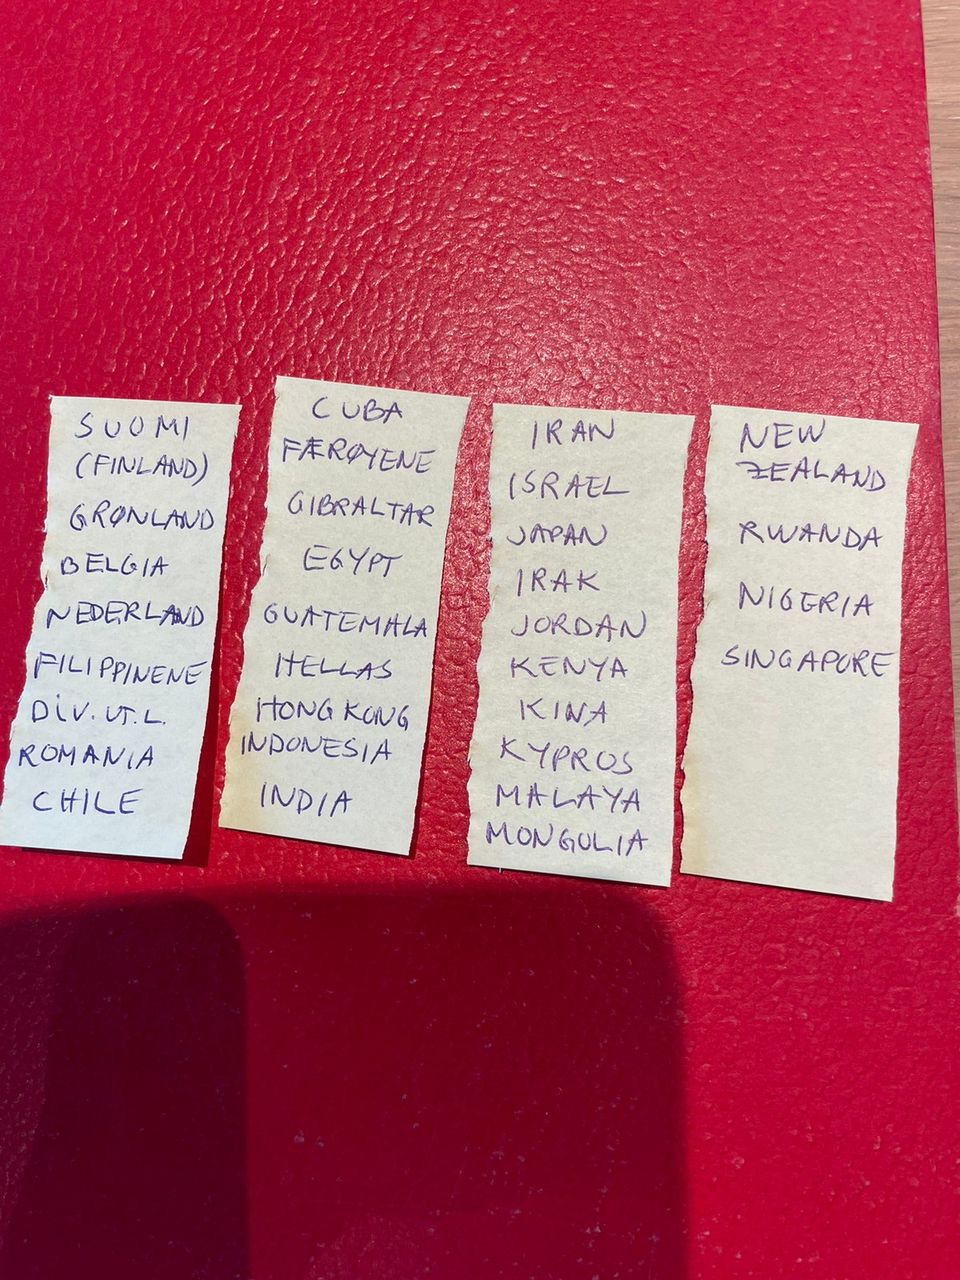 SUOMI
(FINLAND)
GRØNLAND
BELGIA
NEDERLAND
FILIPPINENE
DIV. UT. L.
ROMANIA
CHILE
CUBA
FÆRØYENE
GIBRALTAR
EGYPT
GUATEMALA
HELLAS
HONG KONG
INDONESIA
INDIA
IRAN
ISRAEL
JAPAN
IRAK
JORDAN
KENYA
KINA
KYPROS
MALAYA
MONGOLIA
NEW
ZEALAND
RWANDA
NIGERIA
SINGAPORE